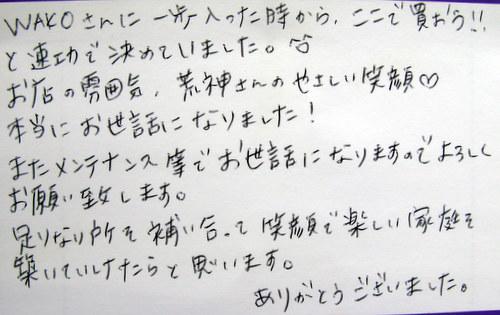 WAKOさんに一歩入った時から、ここで買おう!!
と連功で決めていました。
お店の雰囲気、荒神さんのやさしい笑顔♡
本当にお世話になりました!
またメンテナンス等でお世話になりますのでよろしく
お願い致します。
足りない所を補い合って笑顔で楽しい家庭を
築いていけたらと思います。
ありがとうございました。